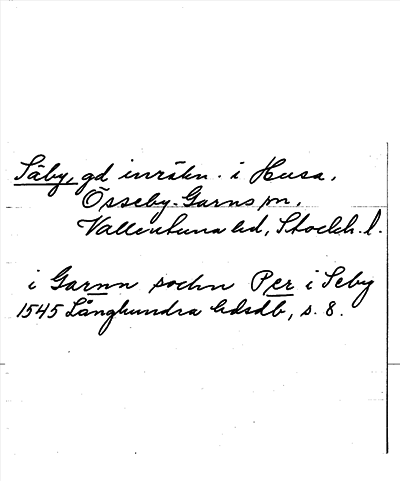 Säby, gd inräkn. i Husa,
Össeby-Garns sn,
Vallentuna hd, Stockh. l.
i Garnn sochn Per i Seby
1545 Långhundra hdsdb, s. 8.